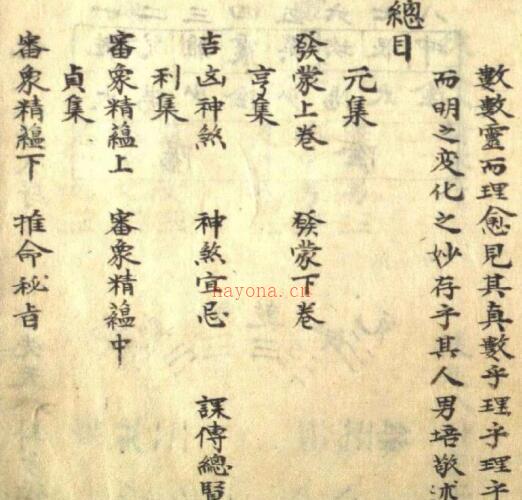 數數靈而理愈見其真數乎理乎理乎
而明之変化之妙存乎其人男培敬述
總目
元集
發蒙上卷 發蒙下卷
亨集
吉凶神煞 神煞宜忌 課傳總覽
利集
審象精蘊上 審象精蘊中
貞集
審象精蘊下 推命秘旨
hayona.cn